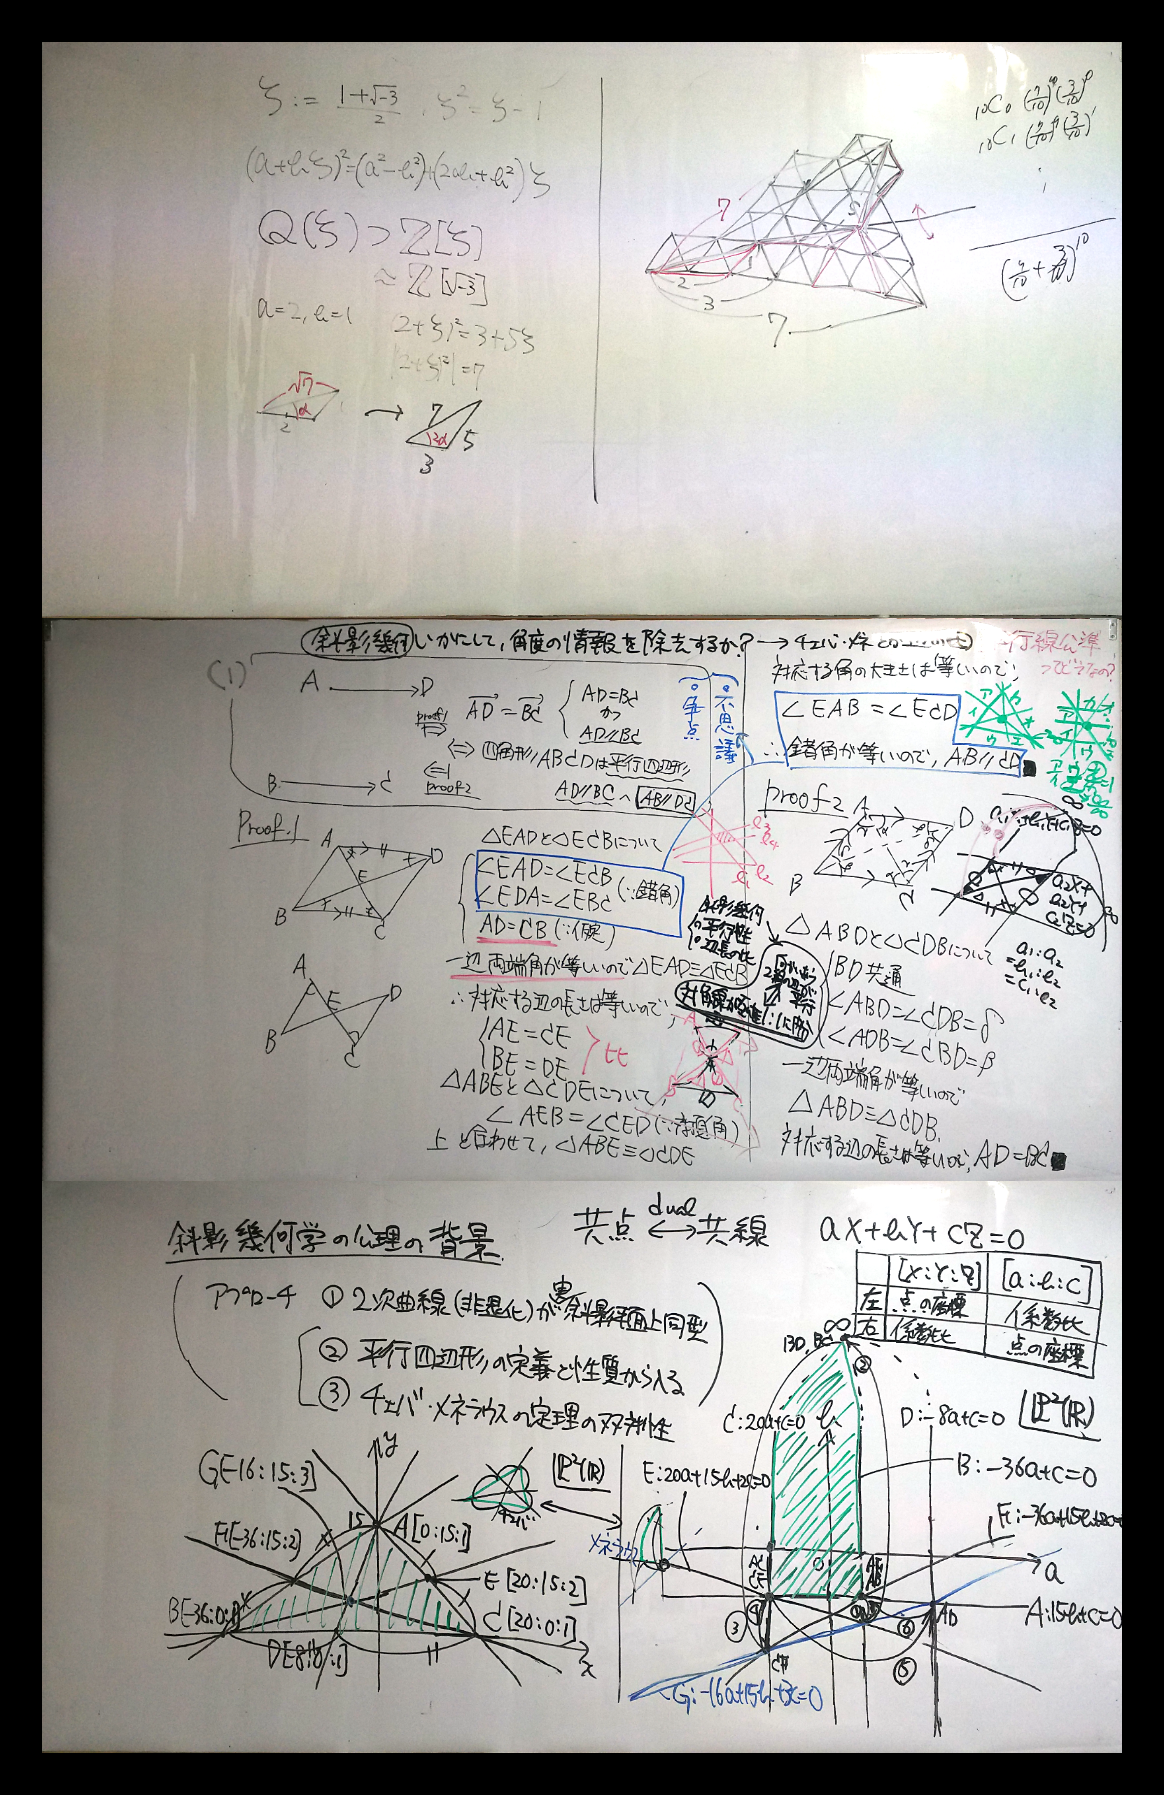 ζ := (1+√-3)/2 , ζ² = ζ - 1
(a+bζ)² = (a²-b²)+(2ab+b²)ζ
Q(ζ) ⊃ Z[ζ]
≈ Z[√-3]
a=2, b=1
(2+ζ)² = 3+5ζ
|2+ζ|² = 7
√7
α
2
7
2α
5
3
7
2
3
7
5
₁₀C₀ (7/10)¹⁰ (3/10)⁰
₁₀C₁ (7/10)⁹ (3/10)¹
(7/10 + 3/10)¹⁰
斜影幾何 いかにして、角度の情報を除去するか?
平行線公準
ってどうなの?
(1)
A → D
B → C
AD = BC
AD=BC
かつ
AD∥BC
proof1
⇔ 四角形ABCDは平行四辺形
proof2
AD∥BC ∧ AB∥DC
不思議
Proof.1
A
D
E
B
C
A
E
D
B
C
△EADと△ECBについて
∠EAD=∠ECB
∠EDA=∠EBC (∵錯角)
AD=CB (∵仮定)
一辺両端角が等しいので△EAD≡△ECB
∴対応する辺の長さは等しいので
AE=CE
BE=DE
△ABEと△CDEについて,
∠AEB=∠CED (∵対頂角)
上と合わせて, △ABE≡△CDE
対応する角の大きさは等しいので,
∠EAB=∠ECD
∴ 錯角が等しいので, AB∥CD
proof2
A
D
B
C
△ABDと△CDBについて
BD共通
∠ABD=∠CDB=δ
∠ADB=∠CBD=β
一辺両端角が等しいので
△ABD≡△CDB.
対応する辺の長さは等しいので, AD=BC
a₁:a₂
=b₁:b₂
=c₁:c₂
斜影幾何学の公理の背景
共点 dual ↔ 共線
aX+bY+cZ=0
[X:Y:Z] [a:b:c]
左 点の座標 係数比
右 係数比 点の座標
アプローチ ① 2次曲線(非退化)が実斜影平面上同型
② 平行四辺形の定義と性質から入る
③ チェバ・メネラウスの定理の双対性
P²(R)
P²(R)
チェバ
メネラウス
G[-16:15:3]
F[-36:15:2]
15
y
A[0:15:1]
E[20:15:2]
B[-36:0:1]
C[20:0:1]
D[8:0:1]
x
∞
BD, BC
②
C:20a+c=0
b
D:-8a+c=0
E:20a+15b+2c=0
B:-36a+c=0
F:-36a+15b+2c=0
a
A:15b+c=0
AD
CF
③
⑥
⑤
G:-16a+15b+3c=0